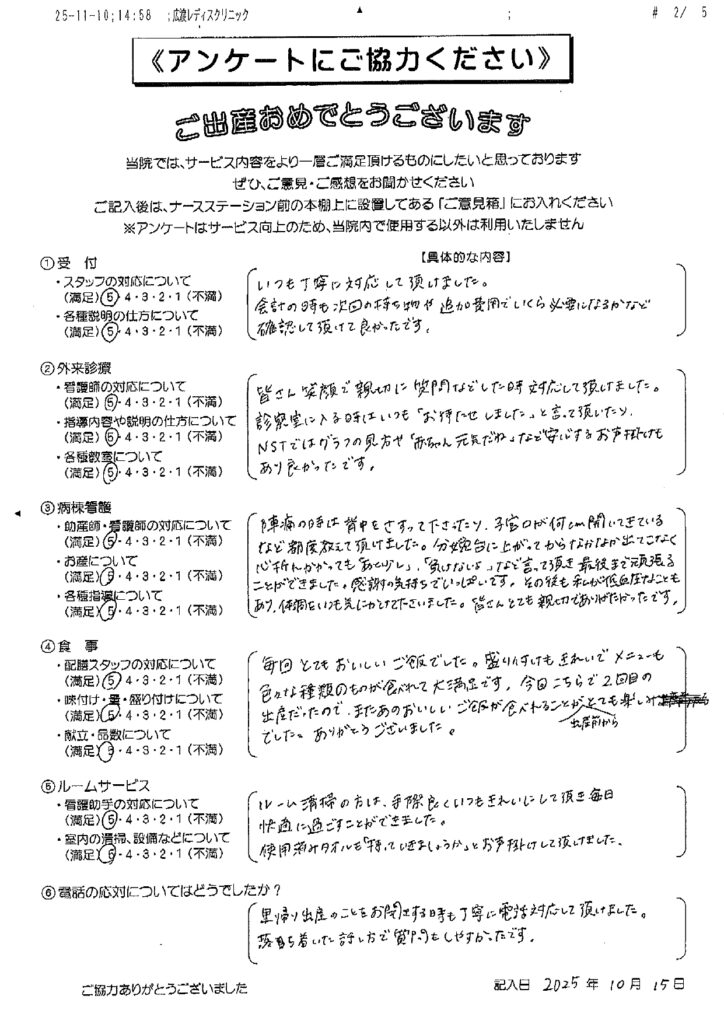 25-11-10;14:58 ;広渡レディスクリニック ; # 2/ 5
《アンケートにご協力ください》
ご出産おめでとうございます
当院では、サービス内容をより一層ご満足頂けるものにしたいと思っております
ぜひ、ご意見・ご感想をお聞かせください
ご記入後は、ナースステーション前の本棚上に設置してある「ご意見箱」にお入れください
※アンケートはサービス向上のため、当院内で使用する以外は利用いたしません
【具体的な内容】
①受 付
・スタッフの対応について
(満足)5・4・3・2・1(不満)
・各種説明の仕方について
(満足)5・4・3・2・1(不満)
いつも丁寧に対応して頂けました。
会計の時も次回の持ち物や追加費用でいくら必要になるかなど
確認して頂けて良かったです。
②外来診療
・看護師の対応について
(満足)5・4・3・2・1(不満)
・指導内容や説明の仕方について
(満足)5・4・3・2・1(不満)
・各種教室について
(満足)5・4・3・2・1(不満)
皆さん笑顔で親切に質問などした時対応して頂けました。
診察室に入る時はいつも「お待たせしました」と言って頂いたり、
NSTではグラフの見方や「赤ちゃん元気だね」など安心するお声掛けも
あり良かったです。
③病棟看護
・助産師・看護師の対応について
(満足)5・4・3・2・1(不満)
・お産について
(満足)5・4・3・2・1(不満)
・各種指導について
(満足)5・4・3・2・1(不満)
陣痛の時は背中をさすってくださったり、子宮口が何cm開いてきている
など都度教えて頂けました。分娩台に上がってからなかなか出てこなく
心折れかかっても「あと少し」、「負けないよ」など言って頂き最後まで頑張る
ことができました。感謝の気持ちでいっぱいです。その後も私が低血圧なことも
あり、体調をいつも気にかけてくださいました。皆さんとても親切でありがたかったです。
④食 事
・配膳スタッフの対応について
(満足)5・4・3・2・1(不満)
・味付け・量・盛り付けについて
(満足)5・4・3・2・1(不満)
・献立・品数について
(満足)5・4・3・2・1(不満)
毎回とてもおいしいご飯でした。盛り付けもきれいでメニューも
色々な種類のものが食べれて大満足です。今回こちらで2回目の
出産だったので、またあのおいしいご飯が食べれることが出産前からとても楽しみ
でした。ありがとうございました。
⑤ルームサービス
・看護助手の対応について
(満足)5・4・3・2・1(不満)
・室内の清掃、設備などについて
(満足)5・4・3・2・1(不満)
ルーム清掃の方は、手際良くいつもきれいにして頂き毎日
快適に過ごすことができました。
使用済みタオルも「持っていきましょうか」とお声掛けして頂けました。
⑥電話の応対についてはどうでしたか?
里帰り出産のことをお聞きする時も丁寧に電話対応して頂けました。
落ち着いた話し方で質問もしやすかったです。
ご協力ありがとうございました
記入日 2025年 10月 15日